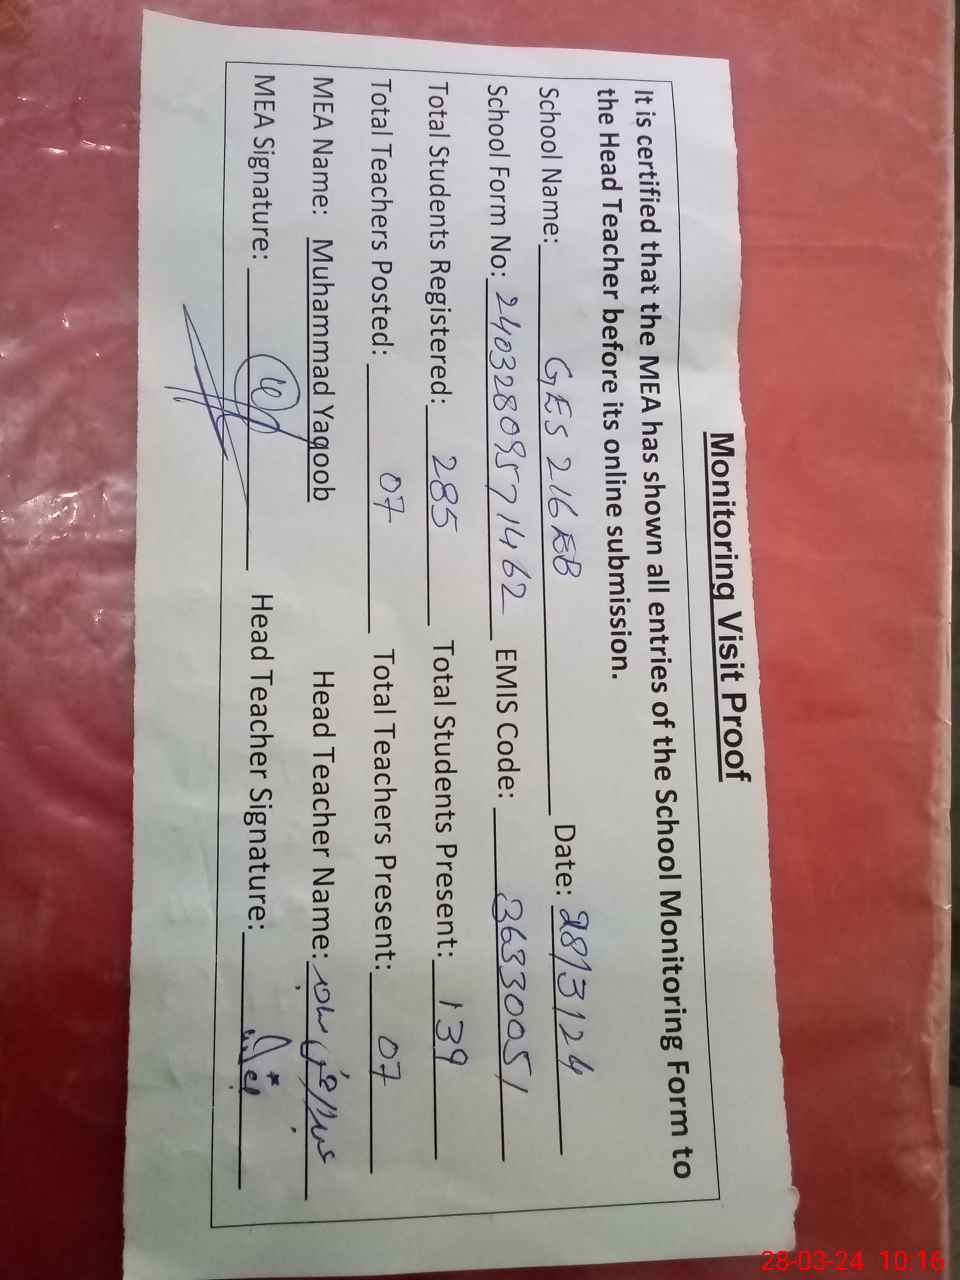 Monitoring Visit Proof
It is certified that the MEA has shown all entries of the School Monitoring Form to
the Head Teacher before its online submission.
School Name: GES 216 EB Date: 28/3/24
School Form No: 24032809571462 EMIS Code: 36330051
Total Students Registered: 285 Total Students Present: 139
Total Teachers Posted: 07 Total Teachers Present: 07
MEA Name: Muhammad Yaqoob Head Teacher Name:
MEA Signature: Head Teacher Signature:
28-03-24 10:16